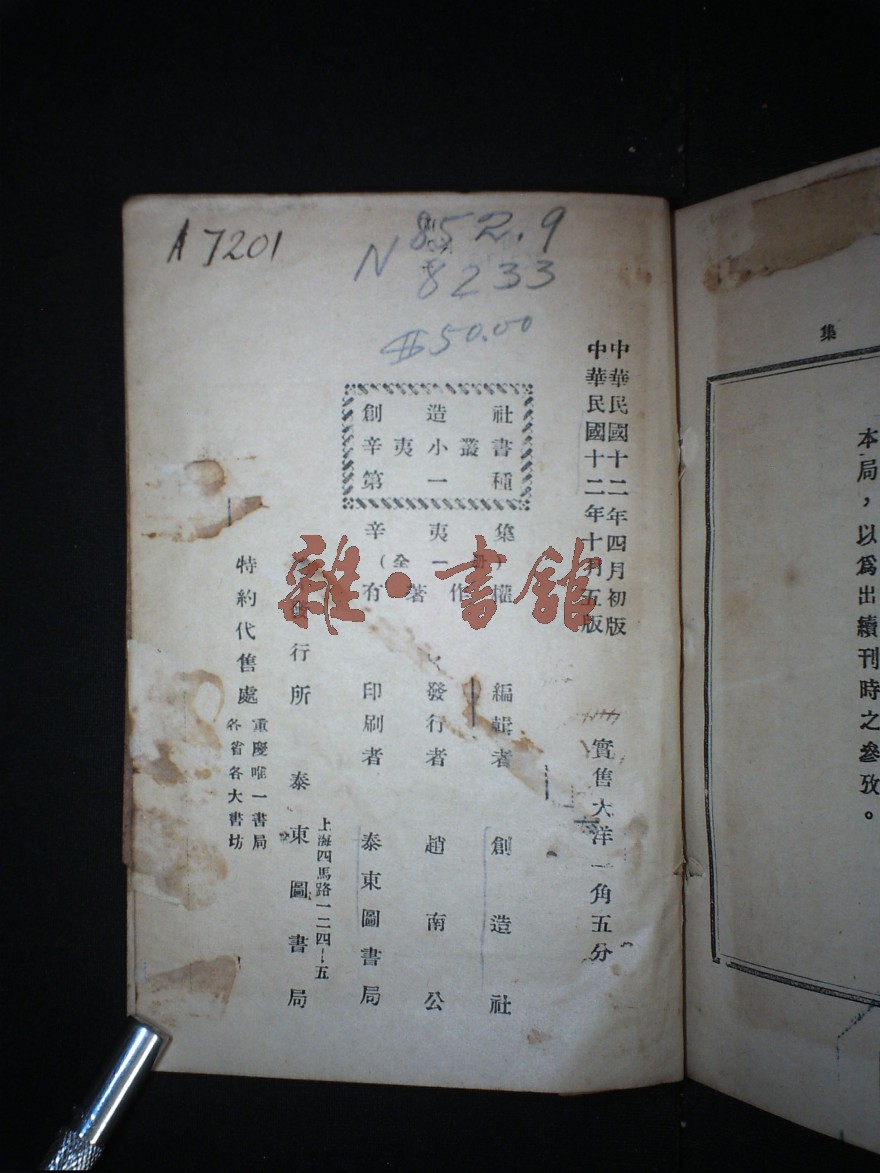 集
本局，以爲出續刊時之參攷。
A 7201
852.9
N 8233
$50.00
中華民國十二年四月初版
中華民國十二年十月五版
實售大洋一角五分
創造社
辛夷小叢書
第一種
辛夷集
（全一冊）
有著作權
編輯者 創造社
發行者 趙南公
印刷者 泰東圖書局
上海四馬路一二四—五
行所 泰東圖書局
特約代售處
重慶唯一書局
各省各大書坊
雜·書館